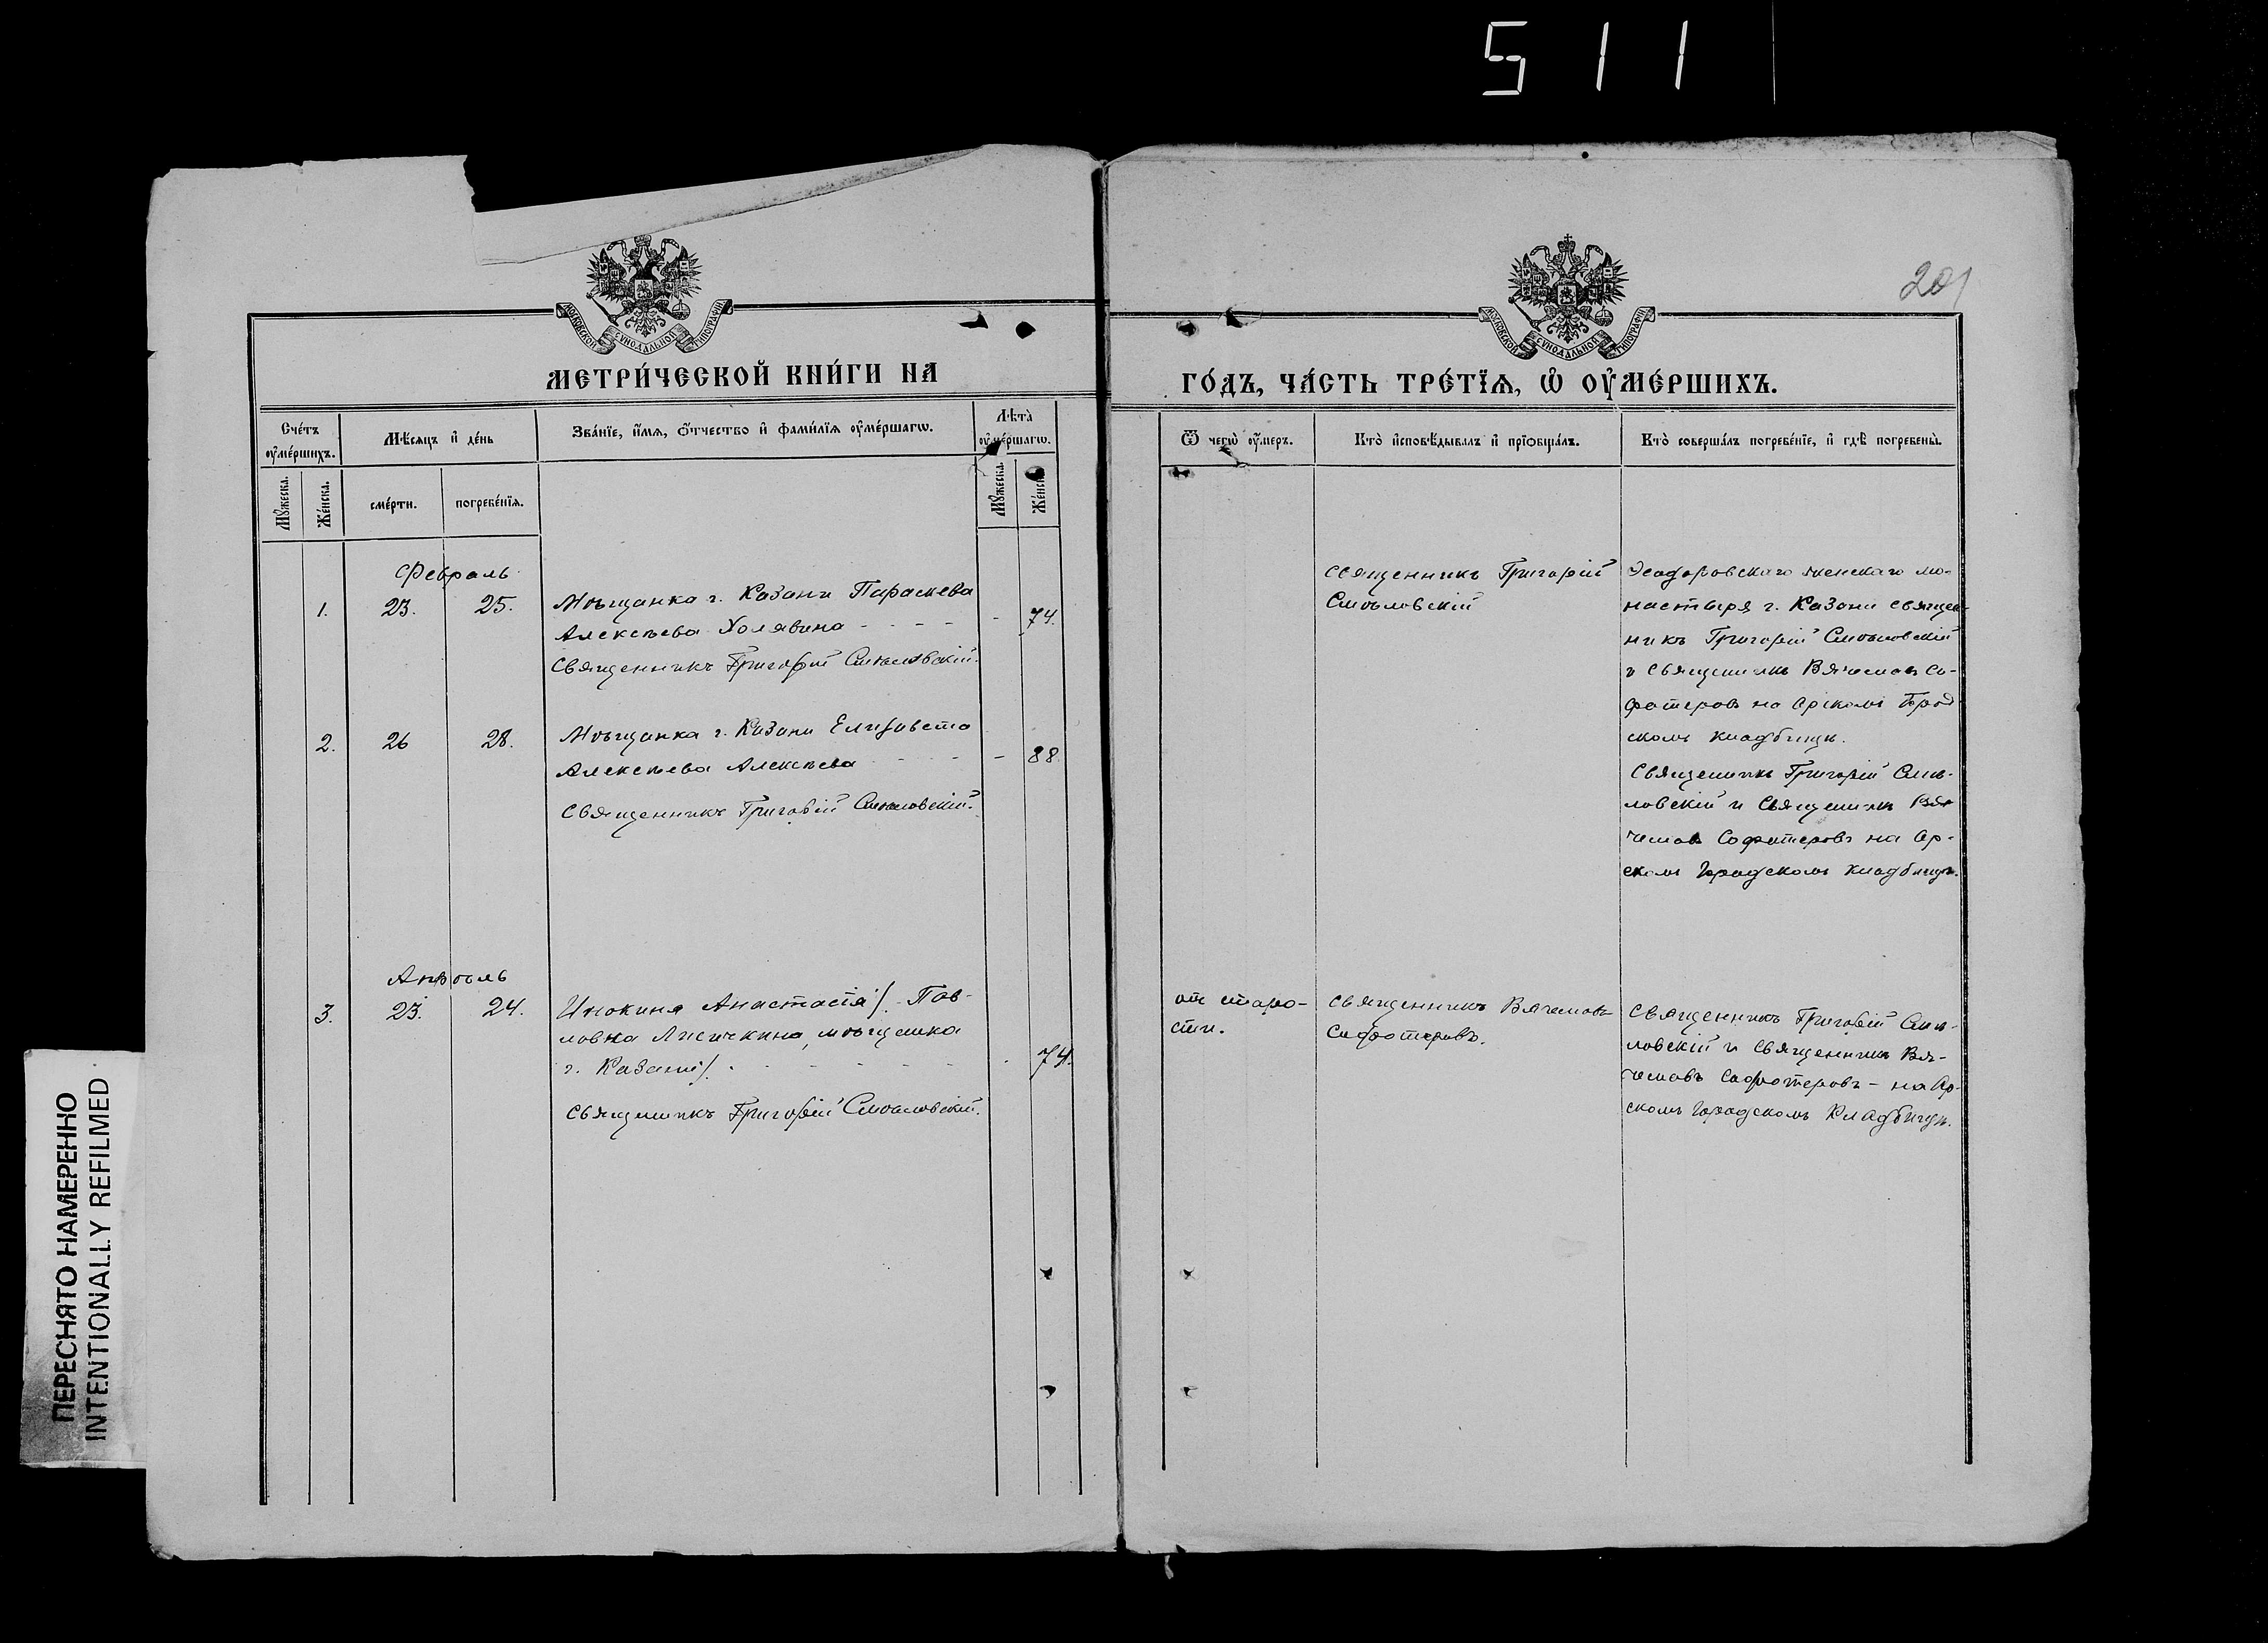 511
201
МОСКОВСКОЙ СУНОДАЛЬНОЙ ТИПОГРАФІИ
МОСКОВСКОЙ СУНОДАЛЬНОЙ ТИПОГРАФІИ
МЕТРИ́ЧЕСКОЙ КНИ́ГИ НА
ГО́ДЪ, ЧА́СТЬ ТРЕ́ТЇѦ, Ѡ҆ ОУ҆МЕ́РШИХЪ.
Сче́тъ оу҆ме́ршихъ.
Мѣ́сѧцъ и҆ де́нь
Зва́нїе, и҆́мѧ, ѻ҆́тчество и҆ фами́лїѧ оу҆ме́ршагѡ.
Лѣ́та̀ оу҆ме́ршагѡ.
Ѿ чегѡ̀ оу҆́меръ.
Кто̀ и҆сповѣ́дывалъ и҆ прїѡбща́лъ.
Кто̀ соверша́лъ погребе́нїе, и҆ гдѣ̀ погребены̀.
Мꙋ́жеска.
Же́нска.
сме́рти.
погребе́нїѧ.
Мꙋ́жеска.
Же́нска.
Февраль
1. 23. 25. Мѣщанка г. Казани Параскева
Алексѣева Холявина - - - - - 74.
Священникъ Григорій Смѣловскій.
Священникъ Григорій
Смѣловскій
Ѳеодоровскаго женскаго мо-
настыря г. Казани священ-
никъ Григорій Смѣловскій
и Священникъ Вячеславъ Со-
фотеровъ на Арскомъ Город
скомъ кладбищѣ.
2. 26 28. Мѣщанка г. Казани Елизавета
Алексѣева Алексѣева - - - - - 88.
Священникъ Григорій Смѣловскій.
Священникъ Григорій Смѣ-
ловскій и Священникъ Вя-
чеславъ Софотеровъ на Ар-
скомъ Городскомъ кладбищѣ.
Апрѣль
3. 23. 24. Инокиня Анастасія /. Пав-
ловна Лисичкина, мѣщанка
г. Казани /. - - - - - - 74.
Священникъ Григорій Смѣловскій.
отъ старо-
сти.
Священникъ Вячеславъ
Софотеровъ.
Священникъ Григорій Смѣ-
ловскій и Священникъ Вя-
чеславъ Софотеровъ - на Ар-
скомъ Городскомъ Кладбищѣ.
ПЕРЕСНЯТО НАМЕРЕННО
INTENTIONALLY REFILMED